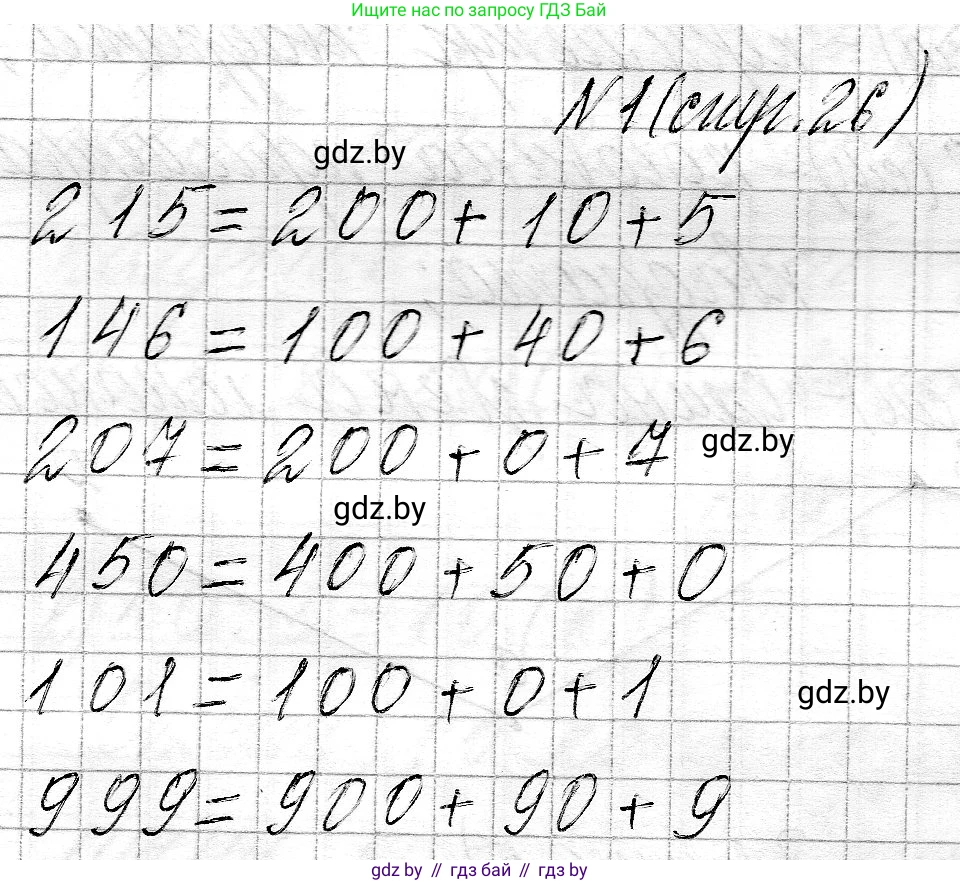 Ищите нас по запросу ГДЗ Бай
N1(стр.26)
gdz.by
215=200+10+5
146=100+40+6
207=200+0+7
gdz.by
gdz.by
450=400+50+0
101=100+0+1
gdz.by
999=900+90+9
gdz.by // гдз бай // гдз by